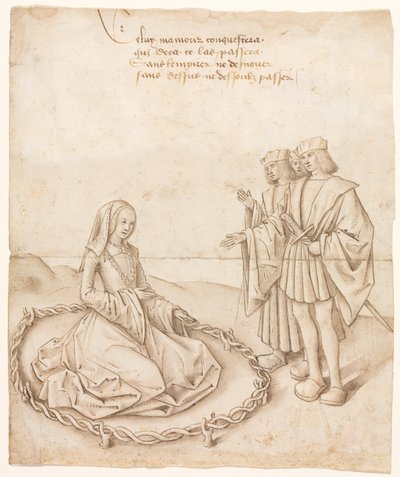 Celuy mamour conquestera.
qui deca ce las passera
Sans lempirer ne desnouer
sans dessus ne dessoubz passer